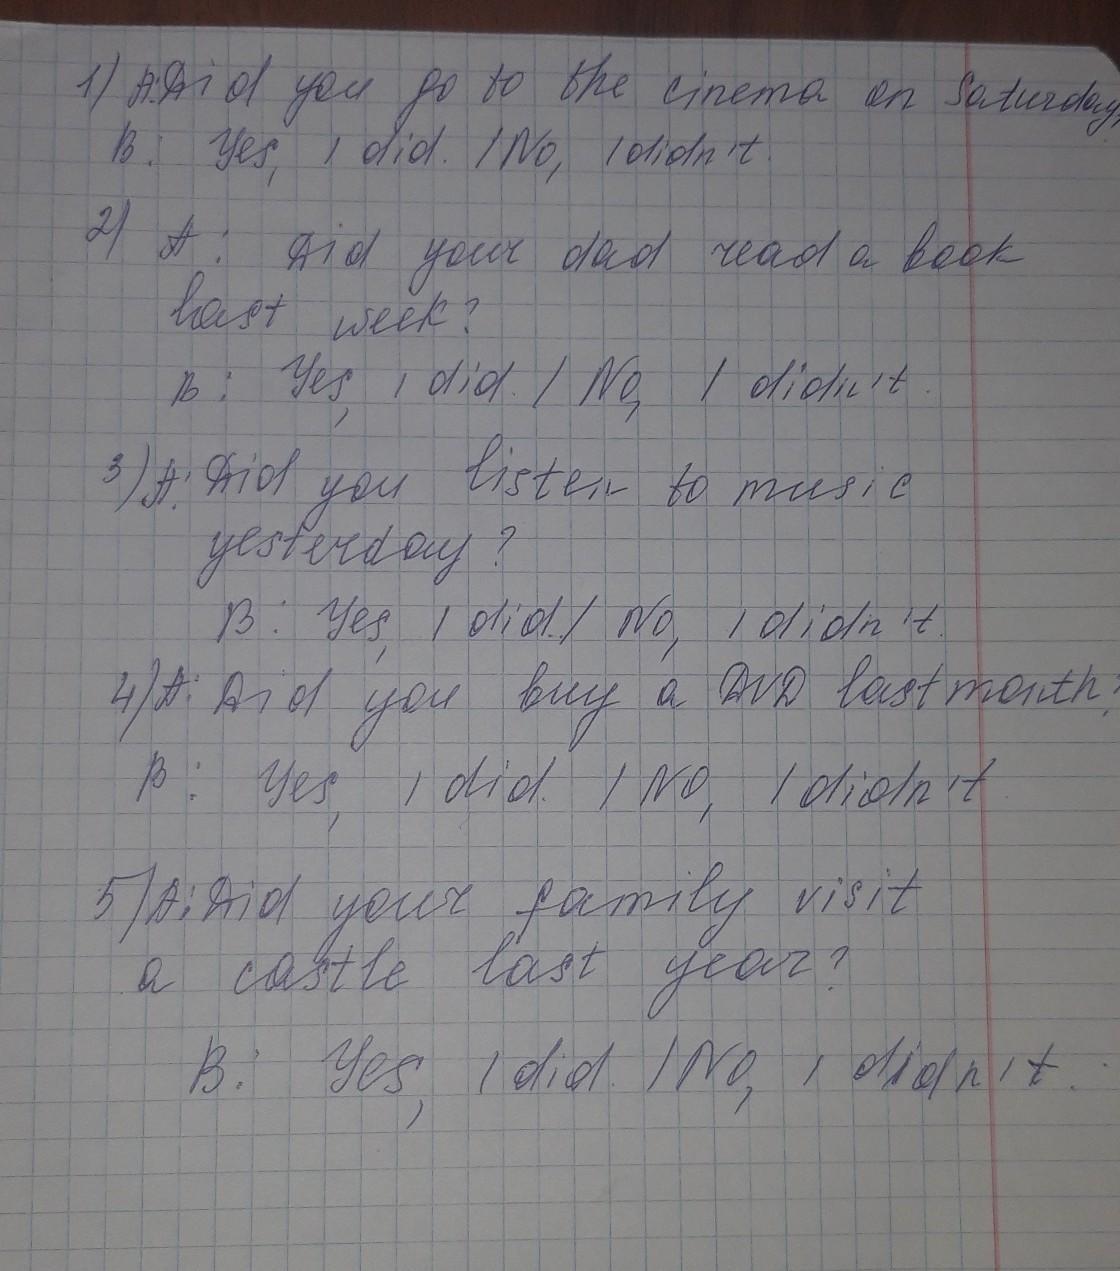 1) A: Did you go to the cinema on Saturday,
B: Yes, I did. / No, I didn't.
2) A: Did your dad read a book
last week?
B: Yes, I did. / No, I didn't.
3) A: Did you listen to music
yesterday?
B: Yes, I did. / No, I didn't.
4) A: Did you buy a DVD last month?
B: Yes, I did. / No, I didn't
5) A: Did your family visit
a castle last year?
B: Yes, I did. / No, I didn't.